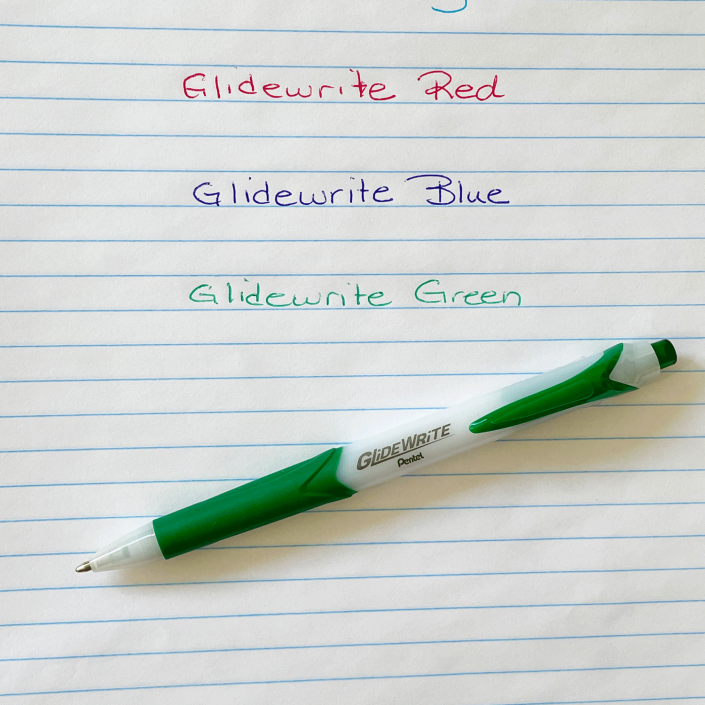 Glidewrite Red
Glidewrite Blue
Glidewrite Green
GLIDEWRITE
Pentel